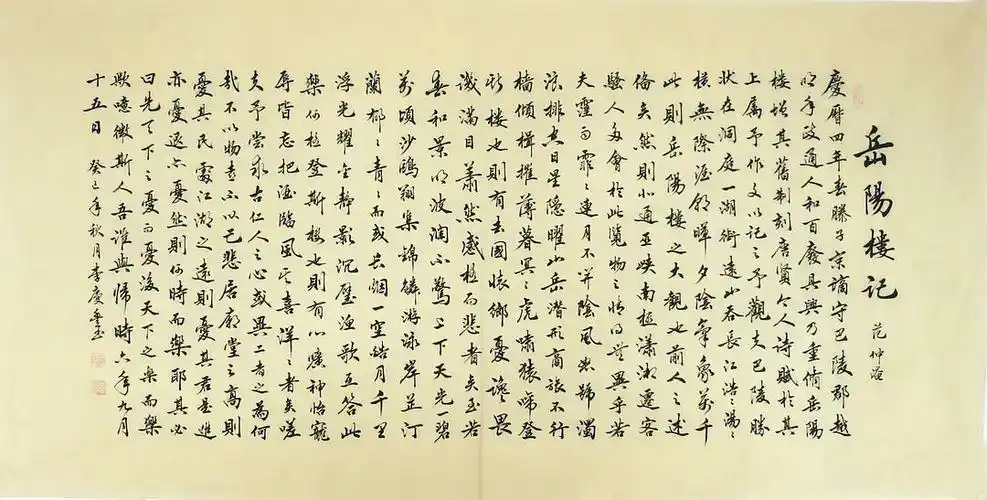 岳陽樓記
范仲淹
慶曆四年春滕子京謫守巴陵郡越
明年政通人和百廢具興乃重脩岳陽
樓增其舊制刻唐賢今人詩賦於其
上屬予作文以記之予觀夫巴陵勝
狀在洞庭一湖銜遠山吞長江浩〻湯〻
橫無際涯朝暉夕陰氣象萬千
此則岳陽樓之大觀也前人之述
備矣然則北通巫峽南極瀟湘遷客
騷人多會於此覽物之情得無異乎若
夫霪雨霏〻連月不開陰風怒號濁
浪排空日星隱曜山岳潛形商旅不行
檣傾楫摧薄暮冥〻虎嘯猿啼登
斯樓也則有去國懷鄉憂讒畏
譏滿目蕭然感極而悲者矣至若
春和景明波瀾不驚上下天光一碧
萬頃沙鷗翔集錦鱗游泳岸芷汀
蘭郁〻青〻而或長煙一空皓月千里
浮光耀金靜影沉璧漁歌互答此
樂何極登斯樓也則有心曠神怡寵
辱皆忘把酒臨風其喜洋〻者矣嗟
夫予嘗求古仁人之心或異二者之為何
哉不以物喜不以己悲居廟堂之高則
憂其民處江湖之遠則憂其君是進
亦憂退亦憂然則何時而樂耶其必
曰先天下之憂而憂後天下之樂而樂
歟噫微斯人吾誰與歸時六年九月
十五日 癸巳年秋月李慶